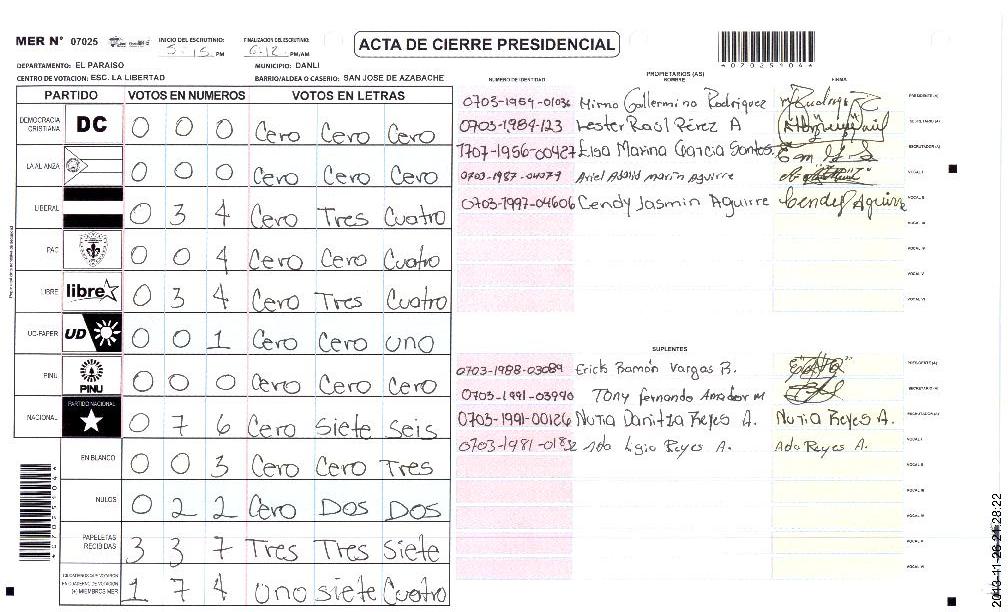 MER N° 07025 INICIO DEL ESCRUTINIO: 5:15 PM FINALIZACION DEL ESCRUTINIO: 6:12 PM/AM
ACTA DE CIERRE PRESIDENCIAL
DEPARTAMENTO: EL PARAISO MUNICIPIO: DANLI
CENTRO DE VOTACION: ESC. LA LIBERTAD BARRIO/ALDEA O CASERIO: SAN JOSE DE AZABACHE
PARTIDO VOTOS EN NUMEROS VOTOS EN LETRAS
DEMOCRACIA CRISTIANA DC 0 0 0 Cero Cero Cero
LA ALIANZA 0 0 0 Cero Cero Cero
LIBERAL 0 3 4 Cero Tres Cuatro
PAC 0 0 4 Cero Cero Cuatro
LIBRE libre 0 3 4 Cero Tres Cuatro
UD-FAPER UD 0 0 1 Cero Cero uno
PINU PINU 0 0 0 Cero Cero Cero
NACIONAL PARTIDO NACIONAL 0 7 6 Cero Siete Seis
EN BLANCO 0 0 3 Cero Cero Tres
NULOS 0 2 2 Cero Dos Dos
PAPELETAS RECIBIDAS 3 3 7 Tres Tres Siete
1 7 4 uno siete Cuatro
4070251044
NUMERO DE IDENTIDAD PROPIETARIOS (AS) NOMBRE FIRMA
0703-1959-01036 Mirna Guillermina Rodriguez PRESIDENTE (A)
0703-1984-123 Lester Raúl Pérez A SECRETARIO (A)
1707-1956-00427 Elsa Marina Garcia Santos ESCRUTADOR (A)
0703-1987-04079 Ariel Adalid Marin Aguirre VOCAL I
0703-1997-04606 Cendy Jasmin Aguirre Cendy Aguirre VOCAL II
VOCAL III
VOCAL IV
VOCAL V
VOCAL VI
SUPLENTES
0703-1988-03089 Erick Ramón Vargas B. PRESIDENTE (A)
0703-1991-03990 Tony Fernando Amador M SECRETARIO (A)
0703-1991-00126 Nuria Danitza Reyes A. Nuria Reyes A. ESCRUTADOR (A)
0703-1981-0182 Ada Ligia Reyes A. Ada Reyes A. VOCAL I
VOCAL II
VOCAL III
VOCAL IV
VOCAL V
VOCAL VI
4070251044
2013-11-26 21:28:22